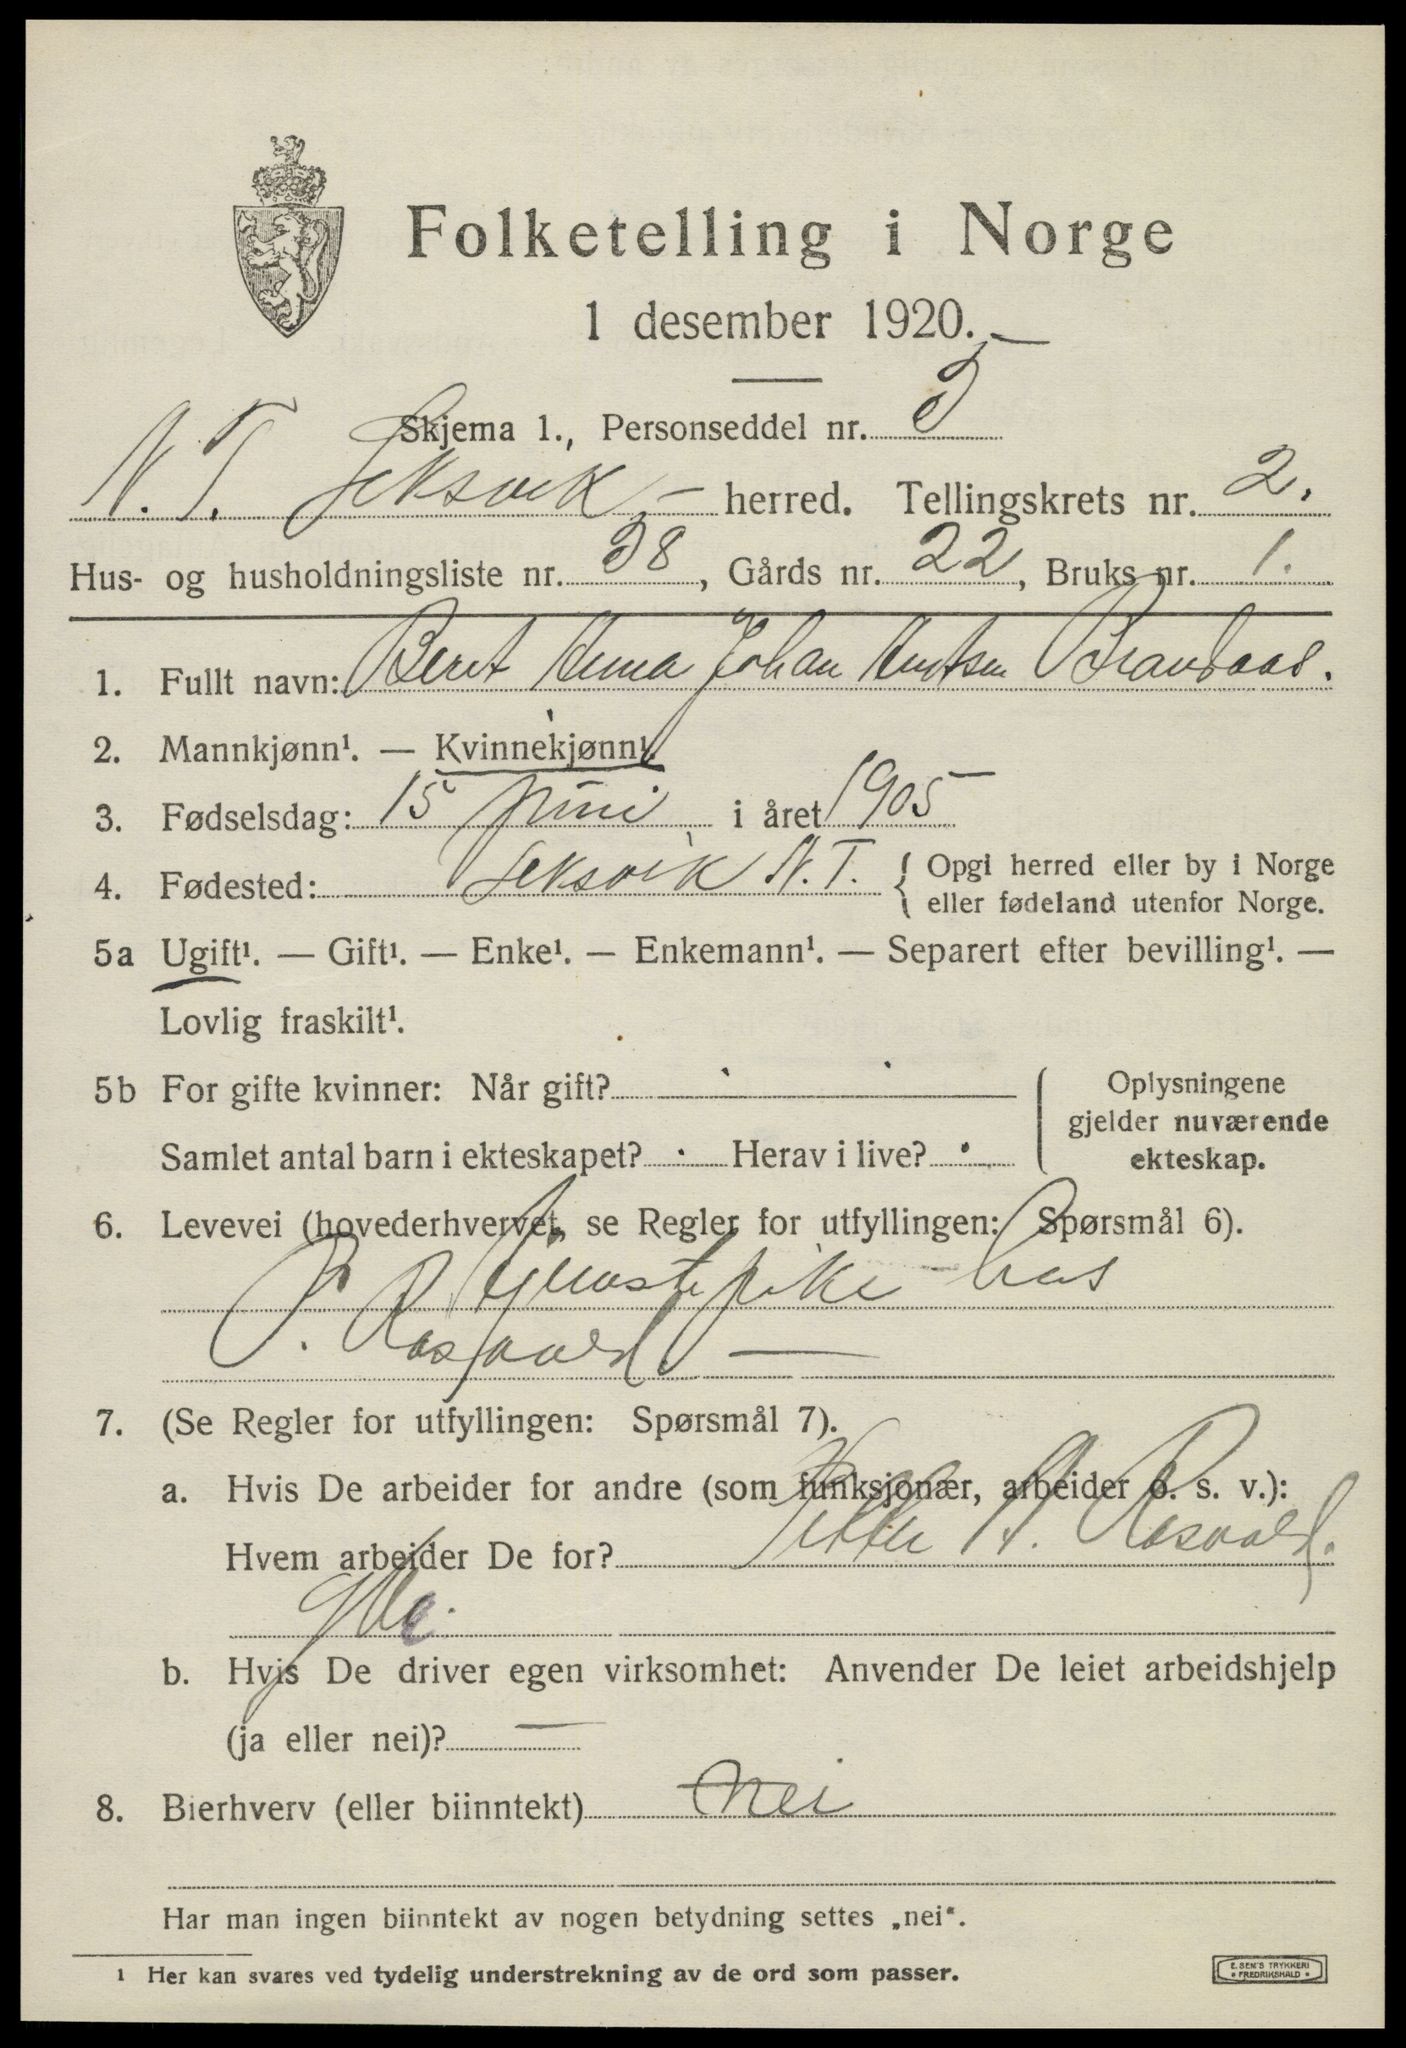 Folketelling i Norge
1 desember 1920.
Skjema 1., Personseddel nr. 5
N. T. Leksvik herred. Tellingskrets nr. 2.
Hus- og husholdningsliste nr. 38, Gårds nr. 22, Bruks nr. 1.
1. Fullt navn: Beret Anna Johan
2. Mannkjønn¹. — Kvinnekjønn¹.
3. Fødselsdag: 15 juni i året 1905
4. Fødested: Leksvik N. T. { Opgi herred eller by i Norge
eller fødeland utenfor Norge.
5a Ugift¹. — Gift¹. — Enke¹. — Enkemann¹. — Separert efter bevilling¹. —
Lovlig fraskilt¹.
5b For gifte kvinner: Når gift?
Samlet antal barn i ekteskapet? Herav i live?
Oplysningene
gjelder nuværende
ekteskap.
6. Levevei (hovederhvervet, se Regler for utfyllingen: Spørsmål 6).
Tjenestepike hos
P. Rosvold. —
7. (Se Regler for utfyllingen: Spørsmål 7).
a. Hvis De arbeider for andre (som funksjonær, arbeider o. s. v.):
Hvem arbeider De for? Petter A. Rosvold.
b. Hvis De driver egen virksomhet: Anvender De leiet arbeidshjelp
(ja eller nei)? —
8. Bierhverv (eller biinntekt) Nei
Har man ingen biinntekt av nogen betydning settes „nei“.
1 Her kan svares ved tydelig understrekning av de ord som passer.
E. SEM'S TRYKKERI
• FREDRIKSHALD •